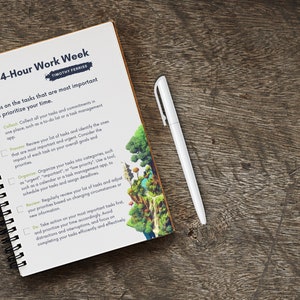 4-Hour Work Week
TIMOTHY FERRISS
on the tasks that are most important
prioritize your time.
Collect: Collect all your tasks and commitments in
one place, such as a to-do list or a task management
app.
Process: Review your list of tasks and identify the ones
that are most important and urgent. Consider the
impact of each task on your overall goals and
priorities.
Organize: Organize your tasks into categories, such
as "urgent", "important", or "low priority". Use a tool,
such as a calendar or a task management app, to
schedule your tasks and assign deadlines.
Review: Regularly review your list of tasks and adjust
priorities based on changing circumstances or
new information.
Do: Take action on your most important tasks first,
and prioritize your time accordingly. Avoid
distractions and interruptions, and focus on
completing your tasks efficiently and effectively.